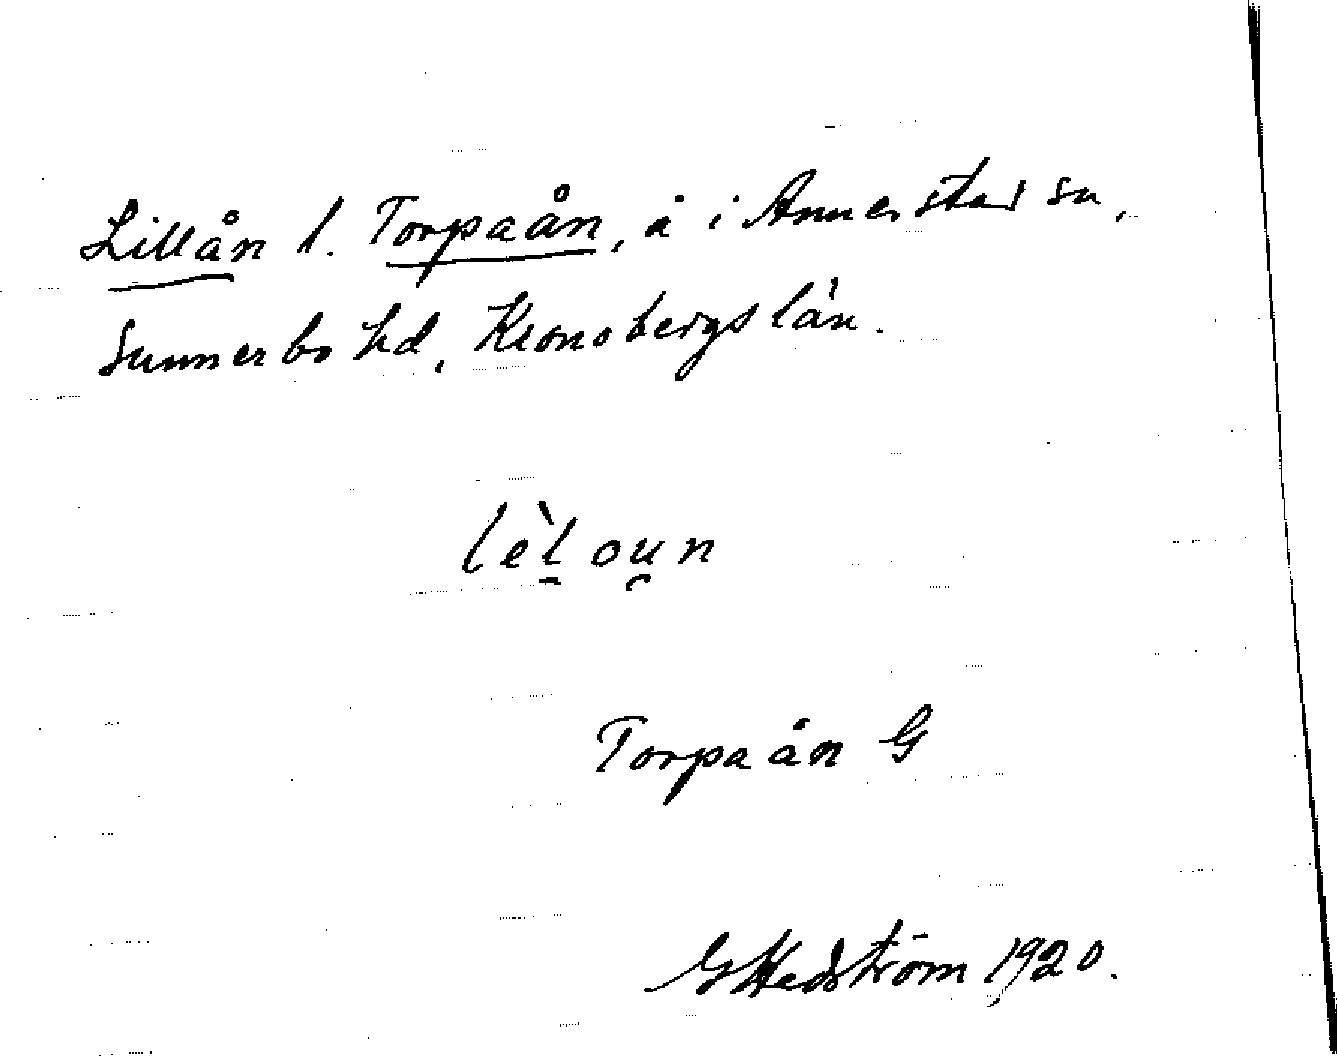 Lillån l. Torpaån, å i Annerstad sn,
Sunnerbo hd, Kronobergs län.
lèl̠ou̯n
Torpaån G
G Hedström 1920.